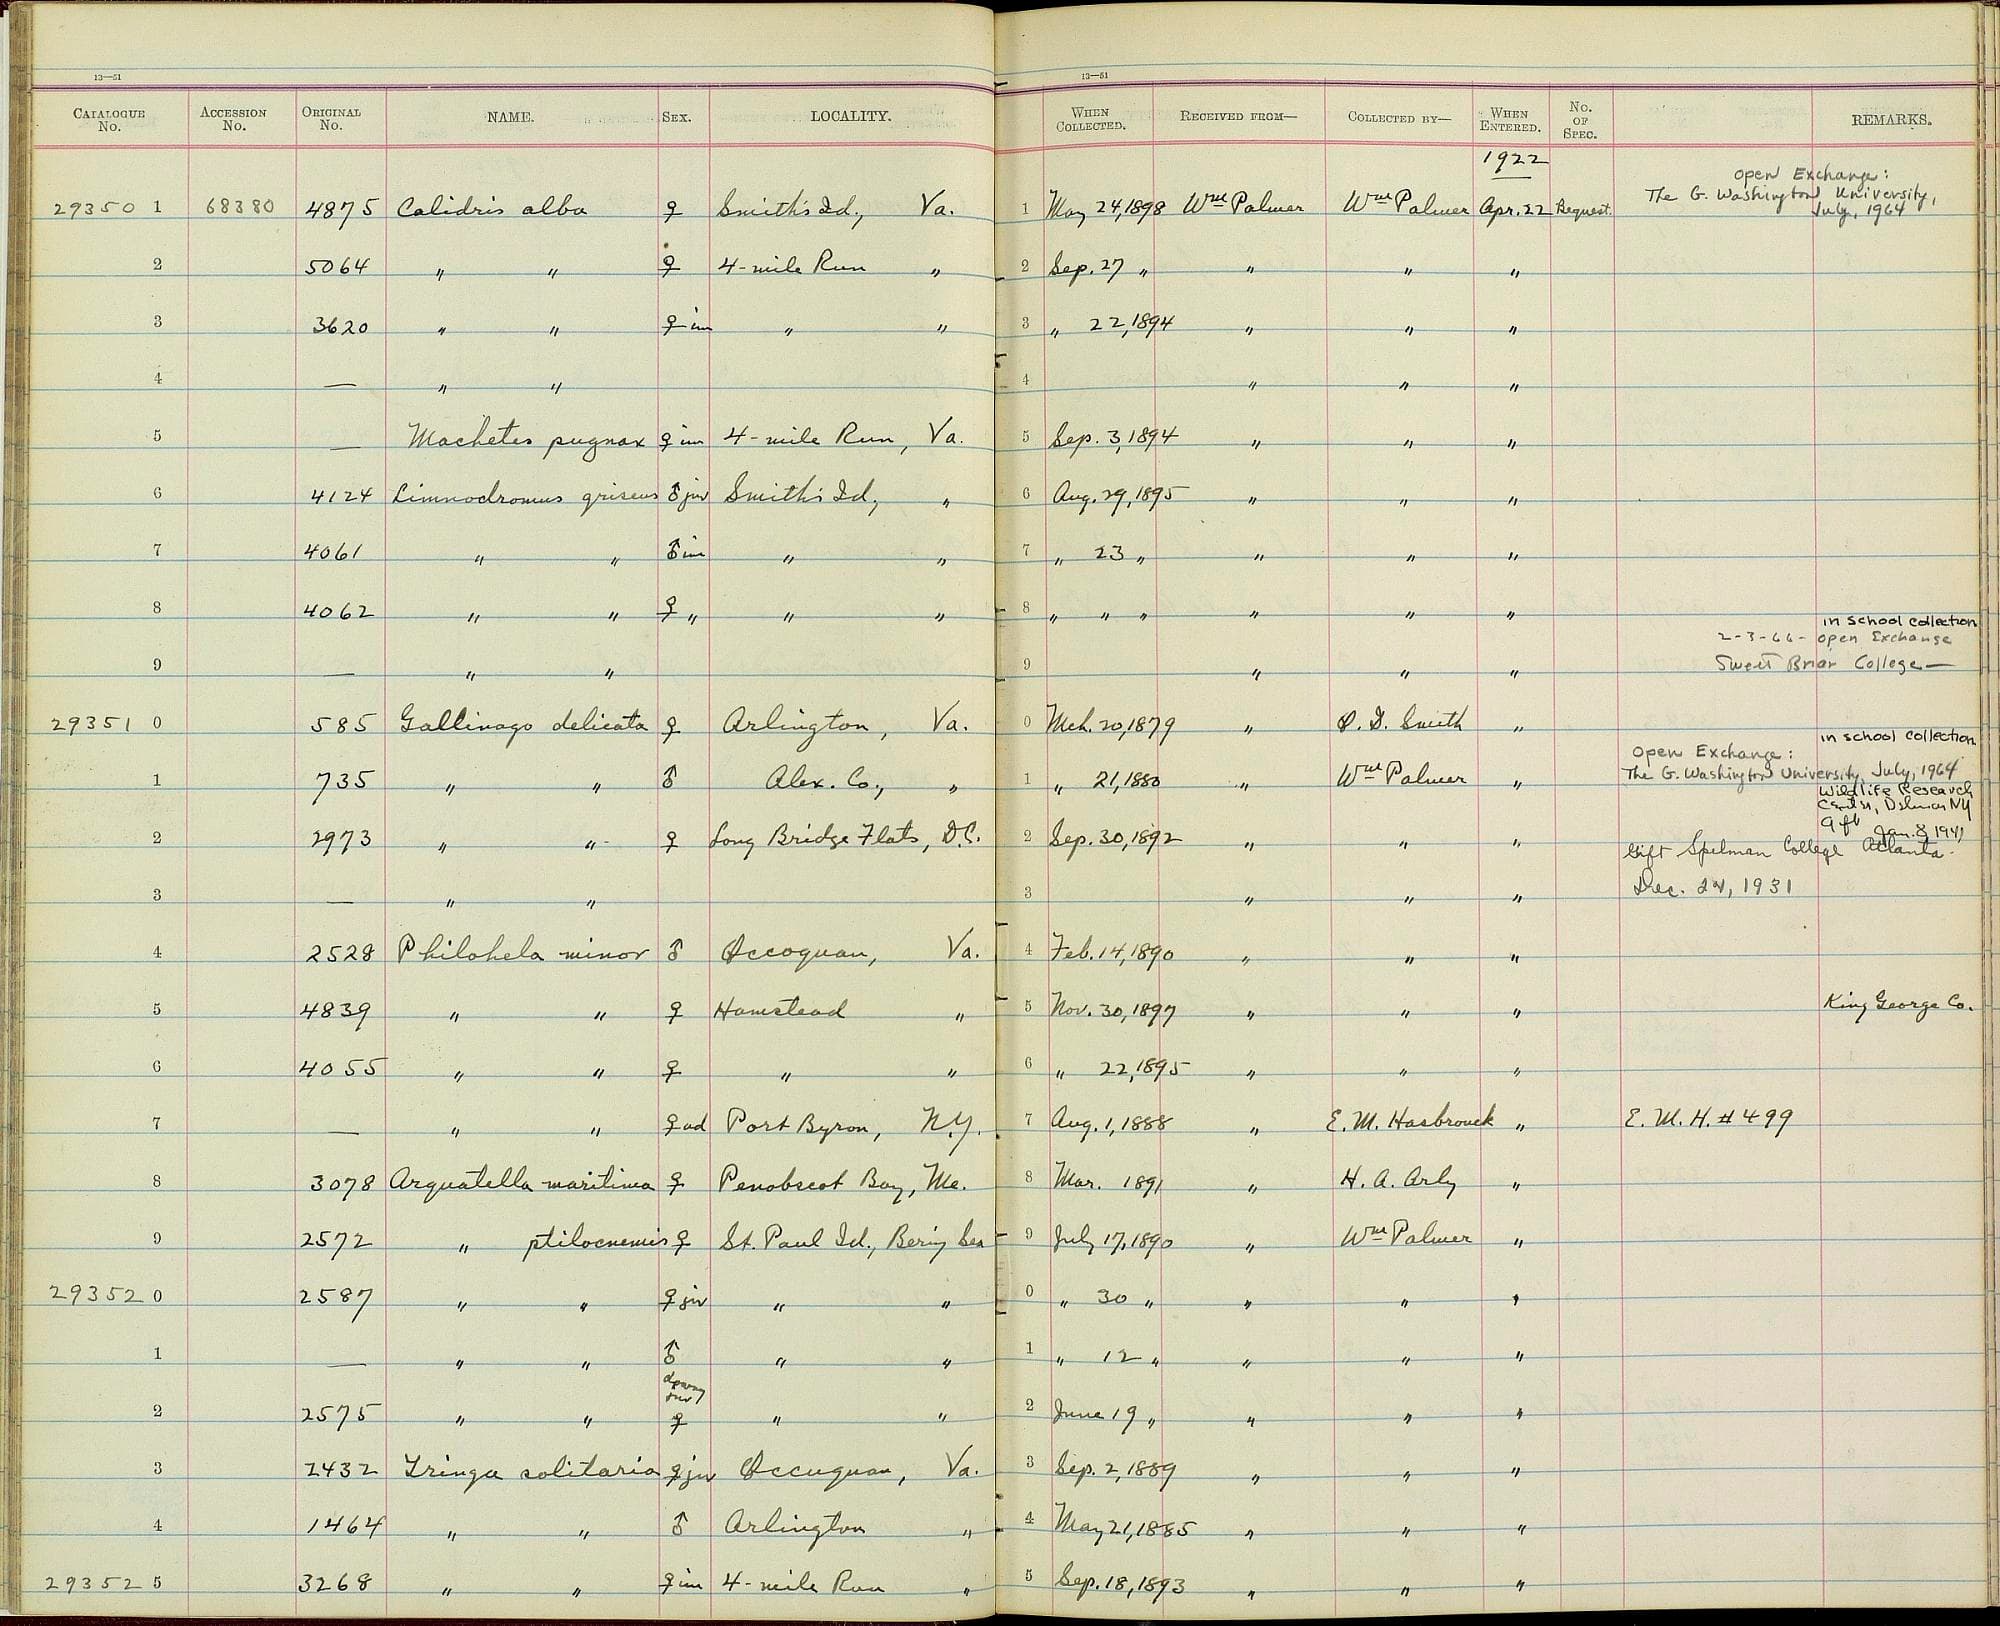 13—51
CATALOGUE No. ACCESSION No. ORIGINAL No. NAME. SEX. LOCALITY.
29350 1 68380 4875 Calidris alba ♀ Smith's Id, Va.
2 5064 " " ♀ 4-mile Run "
3 3620 " " ♀ im " "
4 — " "
5 — Machetes pugnax ♀ im 4-mile Run, Va.
6 4124 Limnodromus griseus ♂ juv Smith's Id, "
7 4061 " " ♂ im " "
8 4062 " " ♀ " " "
9 — " "
29351 0 585 Gallinago delicata ♀ Arlington, Va.
1 735 " " ♂ Alex. Co., "
2 2973 " " ♀ Long Bridge Flats, D.C.
3 — " "
4 2528 Philohela minor ♂ Occoquan, Va.
5 4839 " " ♀ Hamstead "
6 4055 " " ♀ " "
7 — " " ♀ ad Port Byron, N.Y.
8 3078 Arquatella maritima ♀ Penobscot Bay, Me.
9 2572 " ptilocnemis ♀ St. Paul Id., Bering Sea
29352 0 2587 " " ♀ juv " "
1 — " " ♂ downy juv " "
2 2575 " " ♀ " "
3 2432 Tringa solitaria ♀ juv Occuquan, Va.
4 1464 " " ♂ Arlington "
29352 5 3268 " " ♀ im 4-mile Run "
13—51
WHEN COLLECTED. RECEIVED FROM— COLLECTED BY— WHEN ENTERED. No. OF SPEC. REMARKS.
1922
1 May 24, 1898 Wm Palmer Wm Palmer Apr. 22 Bequest. Open Exchange:
The G. Washington University,
July, 1964
2 Sep. 27 " " " "
3 " 22, 1894 " " "
4 " " "
5 Sep. 3, 1894 " " "
6 Aug. 29, 1895 " " "
7 " 23 " " " "
8 " " " " " "
in school collection
2-3-66 - Open Exchange
9 " " " Sweet Briar College —
0 Mch. 20, 1879 " P. D. Smith "
in school collection
Open Exchange:
1 " 21, 1880 " Wm Palmer " The G. Washington University, July, 1964
Wildlife Research
Center, Delmar NY
Gift Jan. 8 1941
2 Sep. 30, 1892 " " " Gift Spelman College Atlanta.
3 " " " Dec. 24, 1931
4 Feb. 14, 1890 " " "
5 Nov. 30, 1897 " " " King George Co.
6 " 22, 1895 " " "
7 Aug. 1, 1888 " E. M. Hasbrouck " E. M. H. # 499
8 Mar. 1891 " H. A. Arly "
9 July 17, 1890 " Wm Palmer "
0 " 30 " " " "
1 " 12 " " " "
2 June 19 " " " "
3 Sep. 2, 1889 " " "
4 May 21, 1885 " " "
5 Sep. 18, 1893 " " "